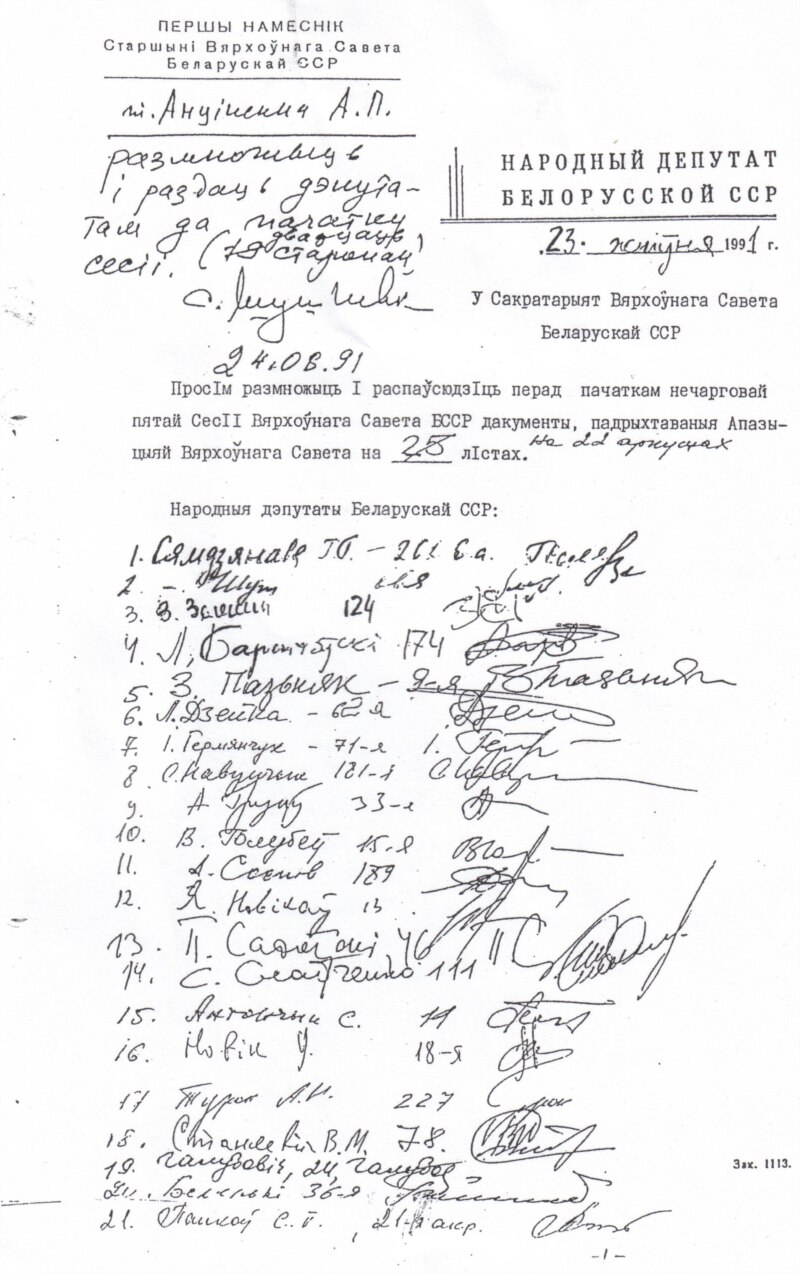 ПЕРШЫ НАМЕСНІК
Старшыні Вярхоўнага Савета
Беларускай ССР
т. Анціпенка А.П.
размножыць
і раздаць дэпута-
там да пачатку
дваццаць
сесіі. ( старонак)
С. Шушкевіч
24.08.91
НАРОДНЫЙ ДЕПУТАТ
БЕЛОРУССКОЙ ССР
23. жніўня 1991 г.
У Сакратарыят Вярхоўнага Савета
Беларускай ССР
ПросІм размножыць І распаўсюдзІць перад пачаткам нечарговай
пятай СесІІ Вярхоўнага Савета БССР дакументы, падрыхтаваныя Апазы-
цыяй Вярхоўнага Савета на 28 лІстах. на 22 аркушах
Народныя дэпутаты Беларускай ССР:
1. Сямдзянава Г.Б. – 261
2.
3. 124
4. Л. Баршчэўскі 174
5. З. Пазьняк –
6. Л. Дзейка – 62-я
7. І. Германчук – 71-я
8 С. Навумчык 181-я
9. А 33-я
10. В. Голубеў 15-я
11. 189
12. Я. Новікаў 13
13. П. Садоўскі 46
14. С. Слабченко 111
15. Антончык С. 19
16. Новік У. 18-я
17 Турок А.И. 227
18. Станкевіч В.М. 78.
19. Галубовіч, 24,
20. Беленькі 36-я
21. Папкоў С.П., 21-я акр.
Зак. 1113.
–1–